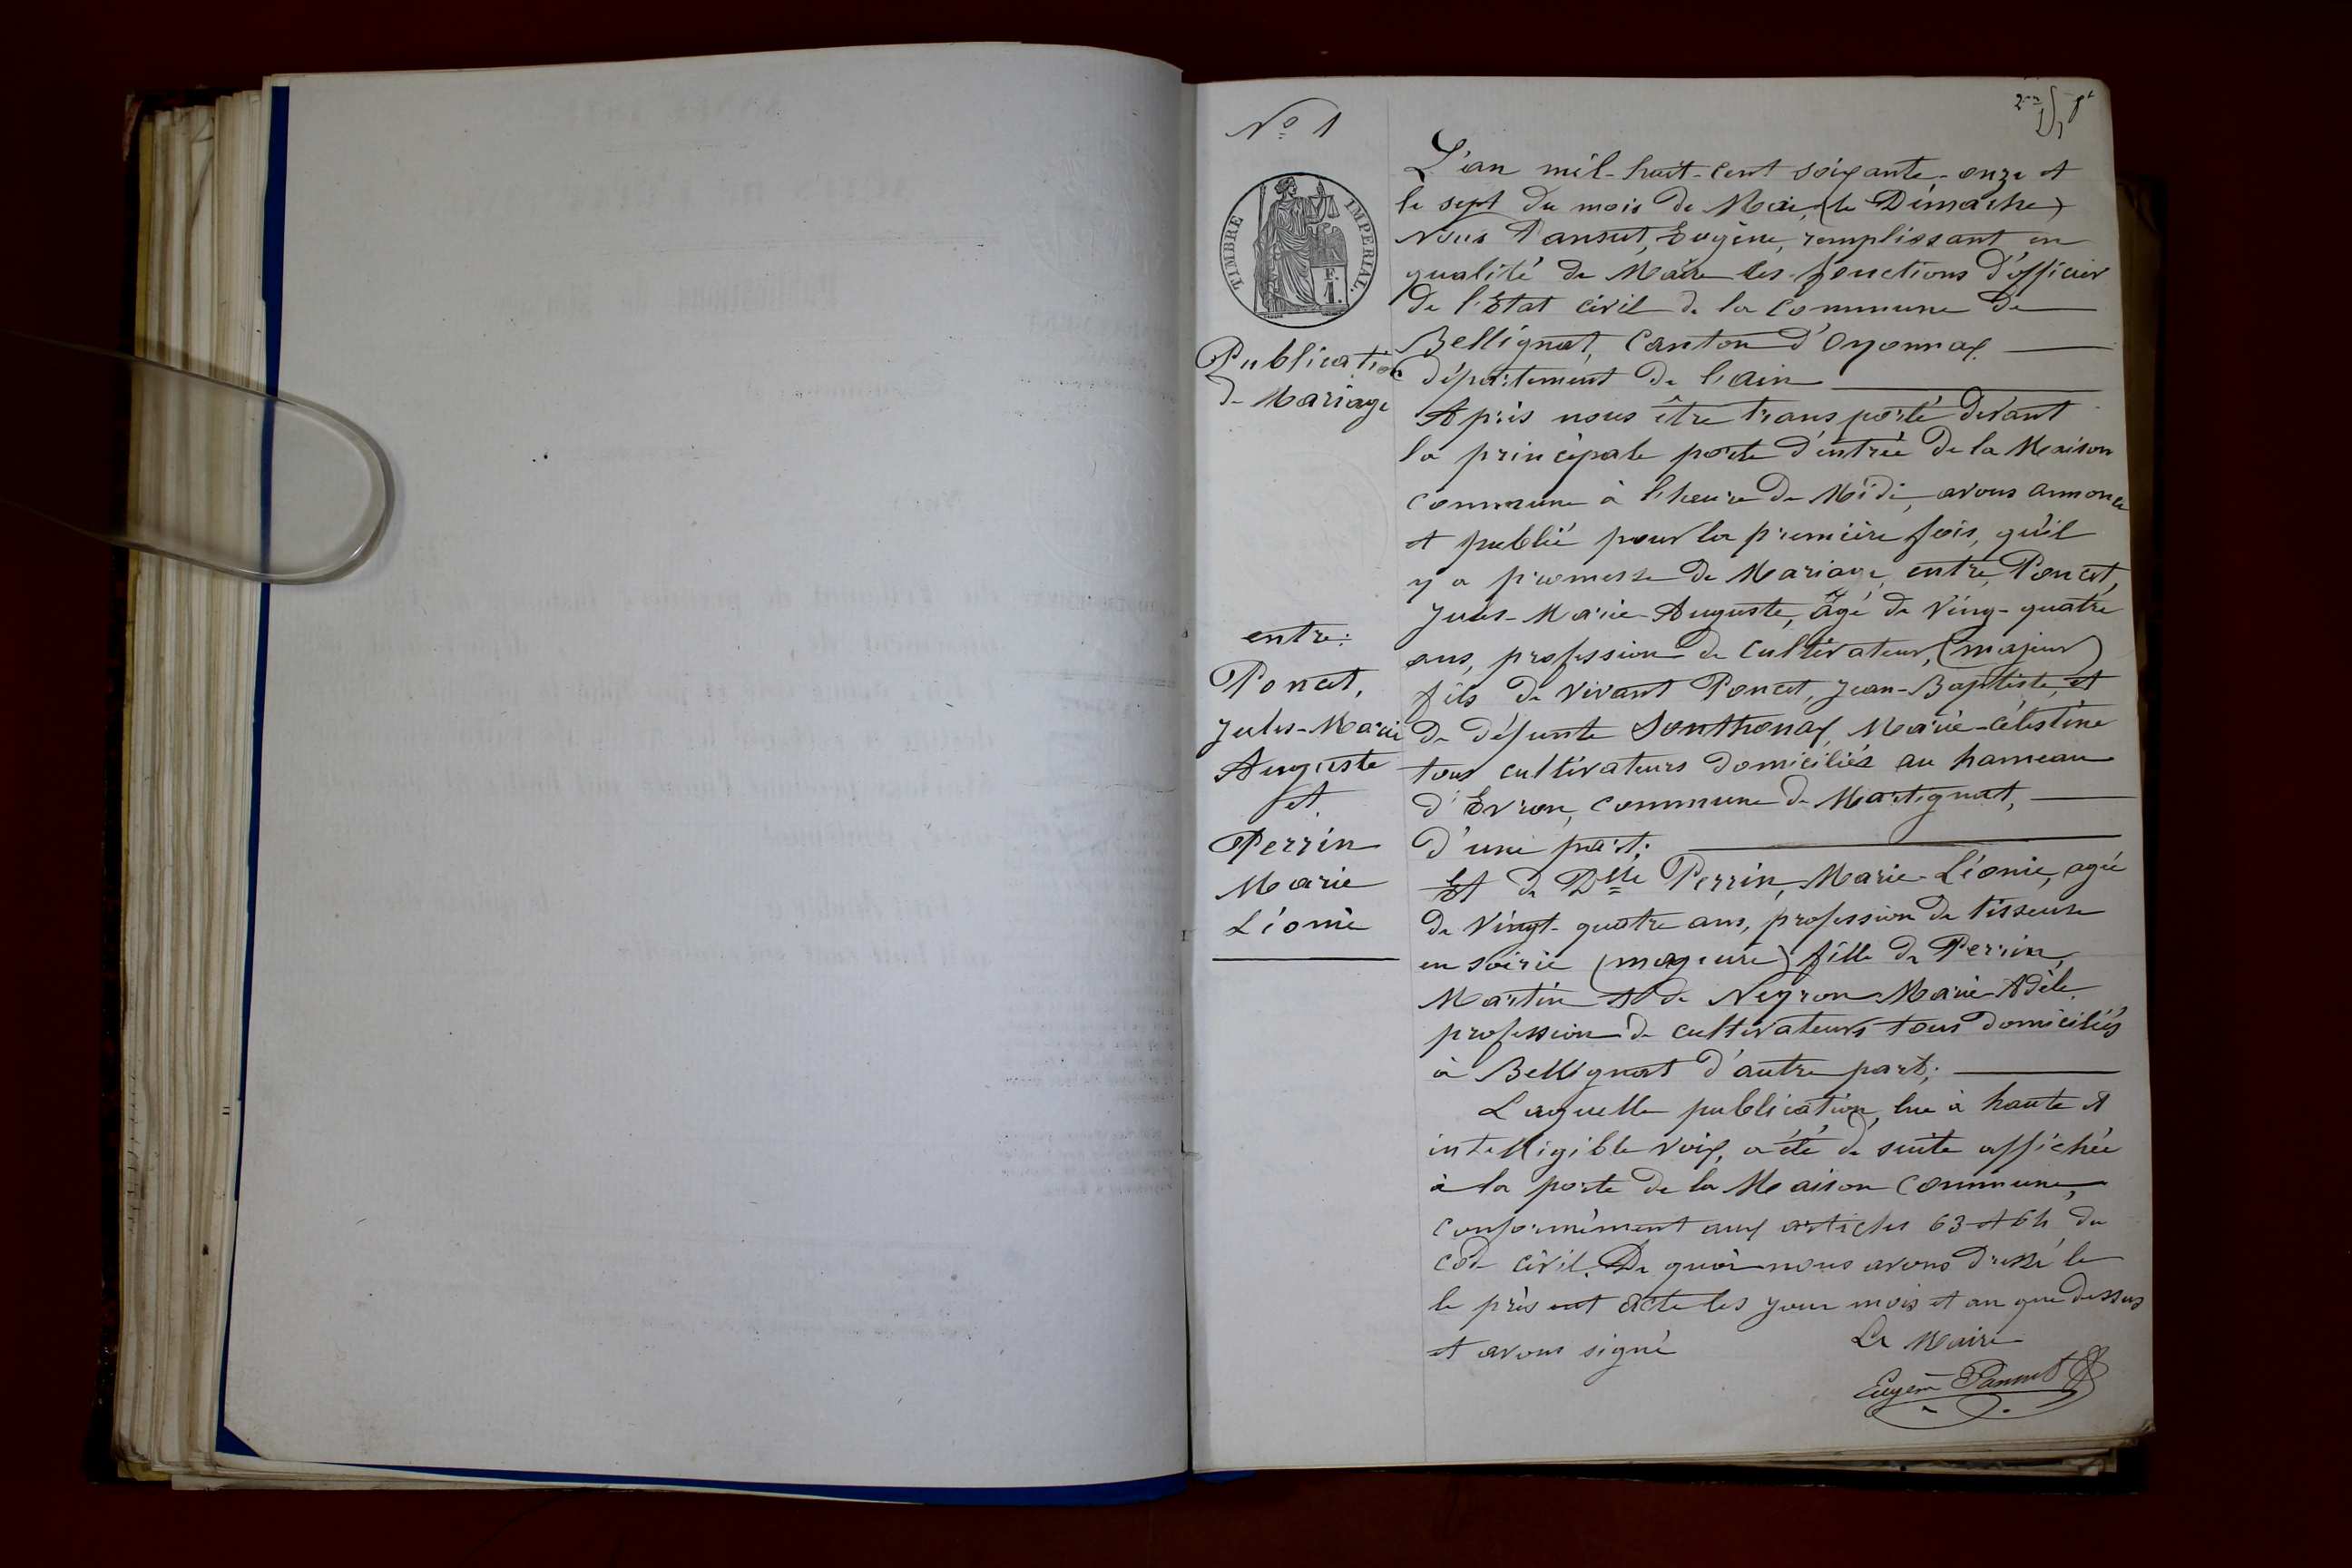 Nº 1
TIMBRE IMPERIAL.
F.
1.
Publication
de Mariage
entre:
Poncet,
Jules-Marie
Auguste
et
Perrin
Marie
Léonie
L'an mil-huit-cent soixante-onze et
le sept du mois de Mai, (le Dimanche)
Nous Pansut, Eugène, remplissant en
qualité de Maire les fonctions d'officier
de l'Etat civil de la Commune de
Bellignat, Canton d'Oyonnax
département de l'ain
Après nous être transporté devant
la principale porte d'entrée de la Maison
commune à l'heure de Midi, avons annoncé
et publié pour la première fois, qu'il
y a promesse de Mariage, entre, Poncet,
Jules-Marie Auguste, âgé de Ving-quatre
ans, profession de Cultivateur, (majeur)
fils de vivant Poncet, Jean-Baptiste, et
de défunte Sonthonax, Marie-Célestine
tous cultivateurs domiciliés au hameau
d'Evron, commune de Martignat,
d'une part;
Et de Dlle Perrin, Marie-Léonie, agée
de Vingt-quatre ans, profession de tisseuse
en soirie (mageure) fille de Perrin,
Martin et de Neyron Marie-Adèle
profession de cultivateurs tous domiciliés
à Bellignat d'autre part;
Laquelle publication, lue à haute et
intelligible voix, a été de suite affichée
à la porte de la Maison Commune,
conformément aux articles 63 et 64 du
code civil. De quoi nous avons dressé le
le présent acte les jour mois et an que dessus
et avons signé
Le Maire
Eugène Pansut